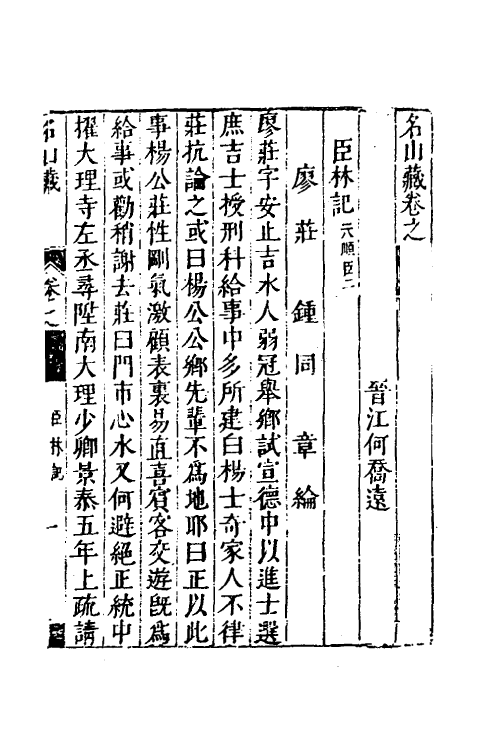 名山藏卷之
晉江何喬遠
臣林記 天順臣二
廖莊 鍾同 章綸
廖莊字安止吉水人弱冠舉鄉試宣德中以進士選
庶吉士授刑科給事中多所建白楊士奇家人不律
莊抗論之或曰楊公公鄉先輩不爲地耶曰正以此
事楊公莊性剛氣激顧表裏易直喜賓客交遊旣爲
給事或勸稍謝去莊曰門市心水又何避絕正統中
擢大理寺左丞尋陞南大理少卿景泰五年上疏請
名山藏 卷之 臣林記 一